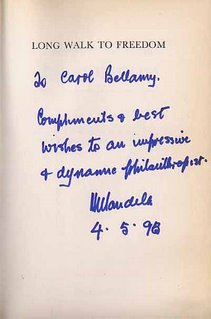 LONG WALK TO FREEDOM
To Carol Bellamy.
Compliments & best
wishes to an impressive
& dynamic philanthropist.
NMandela
4.5.96